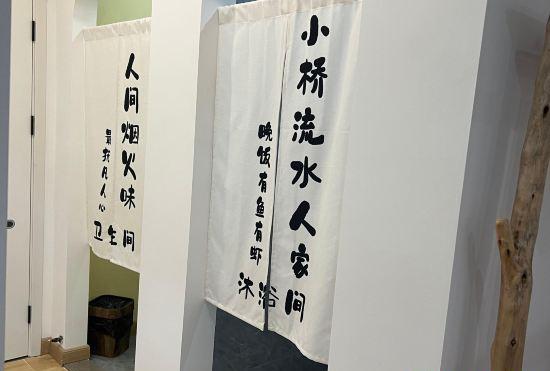 人间烟火味
最抚凡人心
卫生间
小桥流水人家
晚饭有鱼有虾
沐浴间